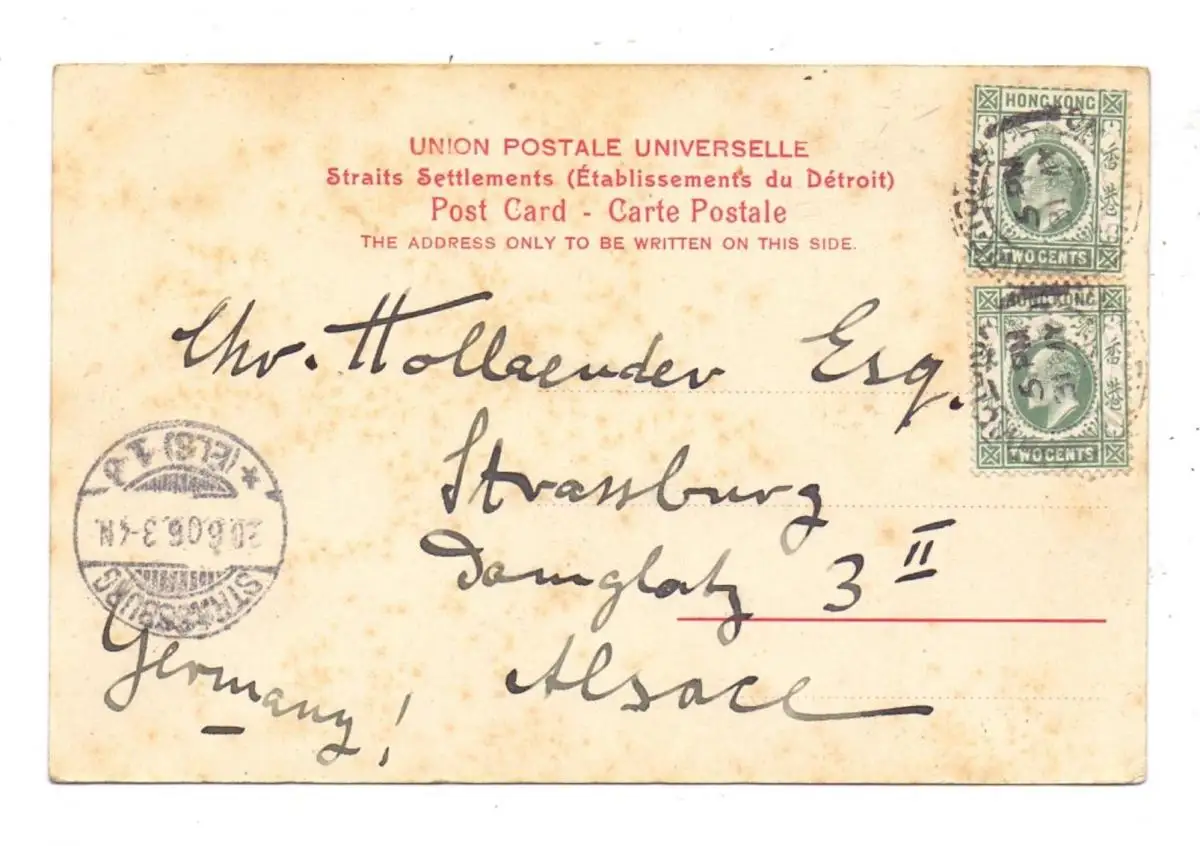 UNION POSTALE UNIVERSELLE
Straits Settlements (Établissements du Détroit)
Post Card - Carte Postale
THE ADDRESS ONLY TO BE WRITTEN ON THIS SIDE.
HONG KONG
香港
TWO CENTS
5 PM
HONG KONG
香港
TWO CENTS
5 PM
Chr. Hollaender Esq.
Strassburg
Domplatz 3 II
Alsace
Germany!
STRASSBURG
* (ELS) 1.
20.6.06. 3-4N.